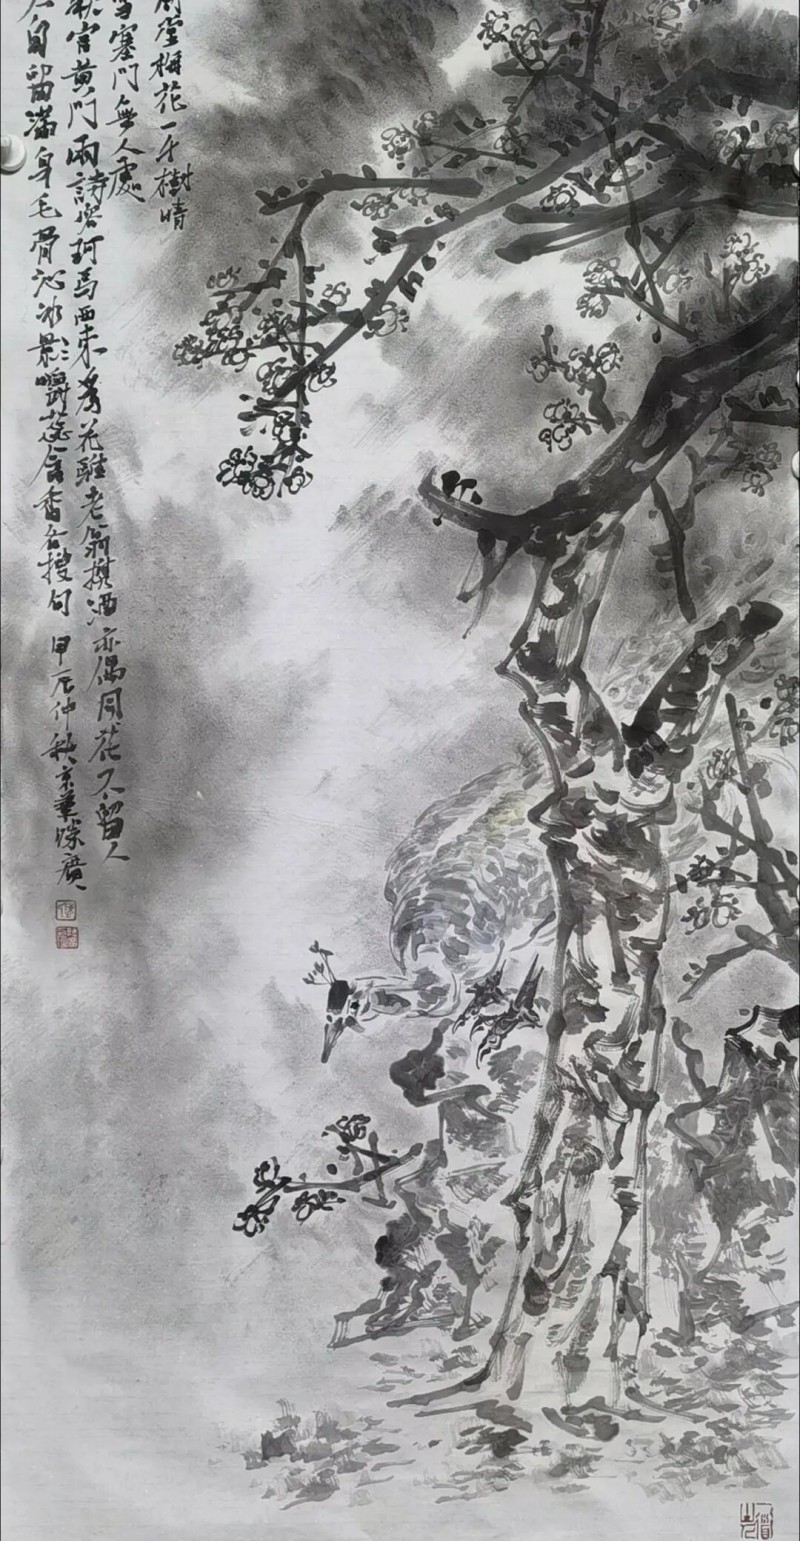 堂梅花一千樹晴
雪塞門無人處
秋官黄門兩詩客珂馬西來為花駐老翁携酒亦偶同花不留人
人自留滿身毛骨沁冰影嚼蕊含香各搜句 甲辰仲秋京華